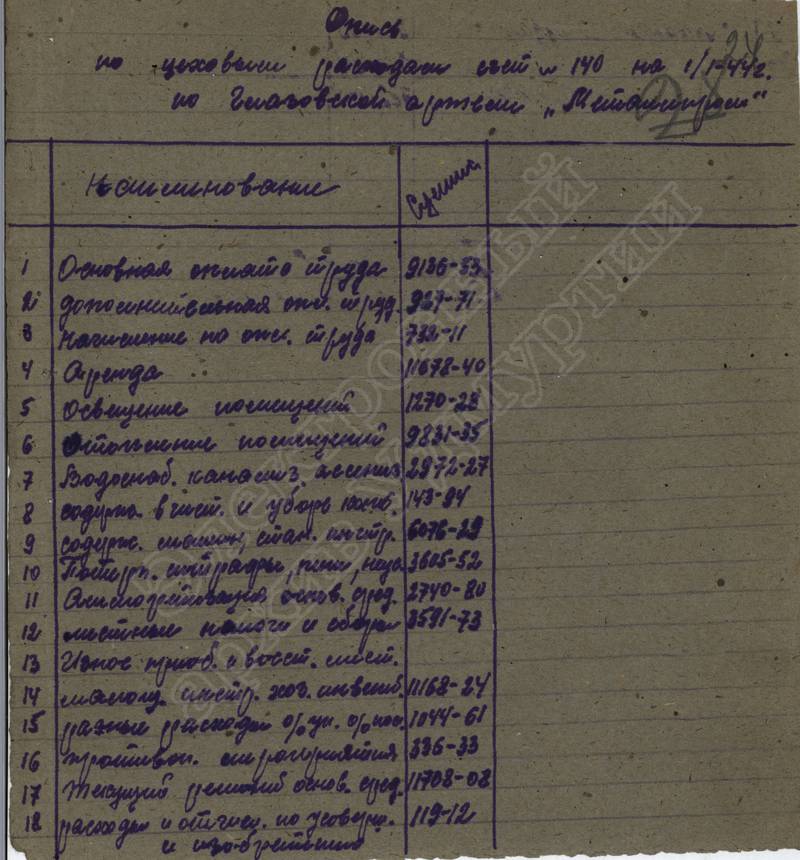 Опись
по цеховым расходам счет № 140 на 1/I-44 г.
по Глазовской артели „Металлпром"
Наименование Сумма
1 Основная оплата труда 9136-53
2 дополнительная опл. труд. 927-71
3 Начисление по опл. труда 732-11
4 Аренда 11678-40
5 Освещение помещений 1270-28
6 Отопление помещений 9831-35
7 Водоснаб. канализ. ассениз. 2972-27
8 содерж. в чист. и уборк. 143-94
9 содерж. машин, стан. инстр. 6076-29
10 штрафы, пени, 3605-52
11 Амортизация основ. сред. 2740-80
12 местные налоги и сборы 3591-73
13 Износ приоб. и восст.
14 малоц. инстр. хоз. инвент. 11168-24
15 разные расходы 1044-61
16 противоп. мероприятия 336-33
17 Текущий ремонт основ. сред. 11708-08
18 расходы и отчисл. по усоверш. 119-12
и изобретению
электронный
архив Удмуртии